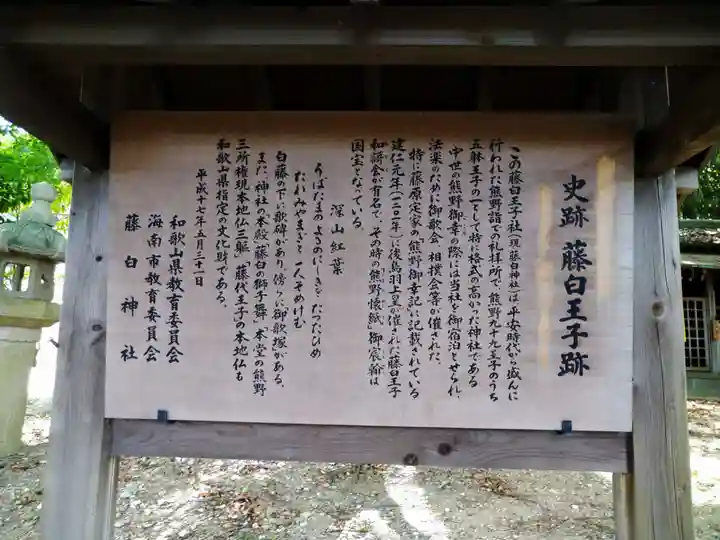 史跡 藤白王子跡
この藤白王子社(現藤白神社)は平安時代から盛んに
行われた熊野詣での礼拝所で、熊野九十九王子のうち
五躰王子の一として特に格式の高かった神社である
中世の熊野御幸の際には当社を御宿泊とせられ、
法楽のために御歌会、相撲会等が催された。
特に藤原定家の「熊野御幸記」に記載されている
建仁元年(一二〇一年)に後鳥羽上皇が催された藤白王子
和謌会が有名で、その時の「熊野懐紙」御宸翰は
国宝となっている。
深山紅葉
うばたまのよるのにしきをたつたひめ
たれみやまぎと一人そめけむ
白藤の下に歌碑があり、傍らに御歌塚がある。
また、神社の本殿、藤白の獅子舞、本堂の熊野
三所権現本地仏三躯、藤代王子の本地仏も
和歌山県指定の文化財である。
平成十七年五月三十一日
和歌山県教育委員会
海南市教育委員会
藤白神社